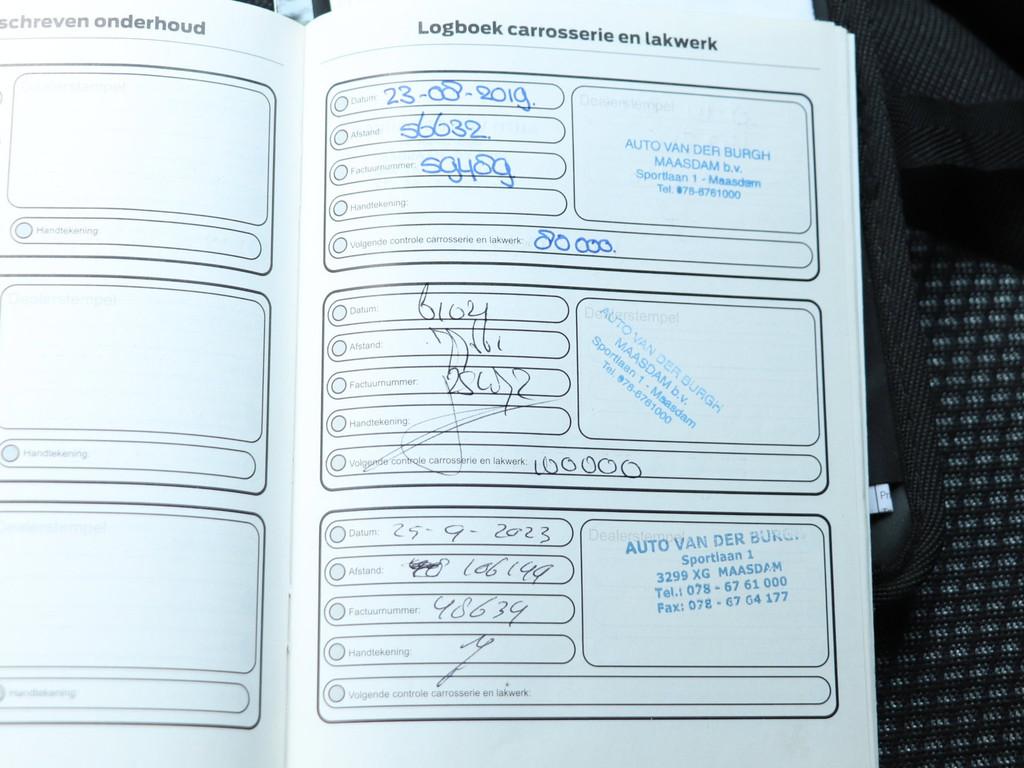 schreven onderhoud
Dealerstempel
Handtekening:
Dealerstempel
Handtekening:
Dealerstempel
Handtekening:
Logboek carrosserie en lakwerk
Datum: 23-08-2019.
Afstand: 56632.
Factuurnummer: 59489
Handtekening:
Volgende controle carrosserie en lakwerk: 80000.
Dealerstempel
AUTO VAN DER BURGH
MAASDAM b.v.
Sportlaan 1 - Maasdam
Tel. 078-6761000
Datum:
Afstand:
Factuurnummer:
Handtekening:
Volgende controle carrosserie en lakwerk: 100000
Dealerstempel
AUTO VAN DER BURGH
MAASDAM b.v.
Sportlaan 1 - Maasdam
Tel. 078-6761000
Datum: 25-9-2023
Afstand: 106149
Factuurnummer: 48639
Handtekening:
Volgende controle carrosserie en lakwerk:
Dealerstempel
AUTO VAN DER BURGH
Sportlaan 1
3299 XG MAASDAM
Tel.: 078 - 67 61 000
Fax: 078 - 67 64 177
Pr